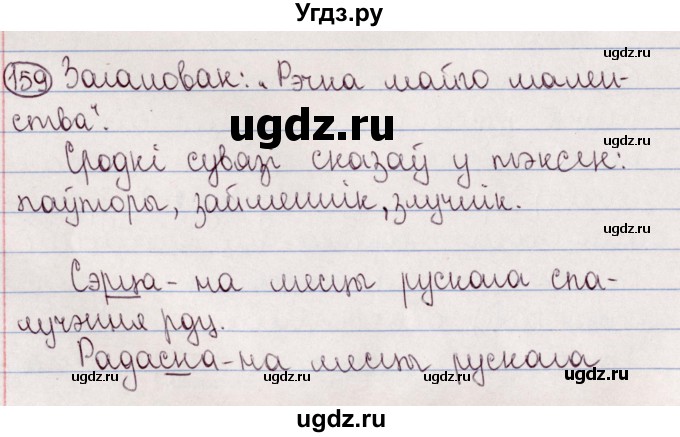 Угдз.ру
ugdz.ru
159 Загаловак: „Рэчка майго мален-
ugdz.ru
ства“.
ugdz.ru
ugdz.ru
Сродкі сувязі сказаў у тэксце:
ugdz.ru
паўторы, займеннік, злучнік.
ugdz.ru
Сэрца - на месцы рускага спа-
ugdz.ru
лучэння рдц.
Радасна - на месцы рускага
ugdz.ru
ugdz.ru
ugdz.ru
ugdz.ru